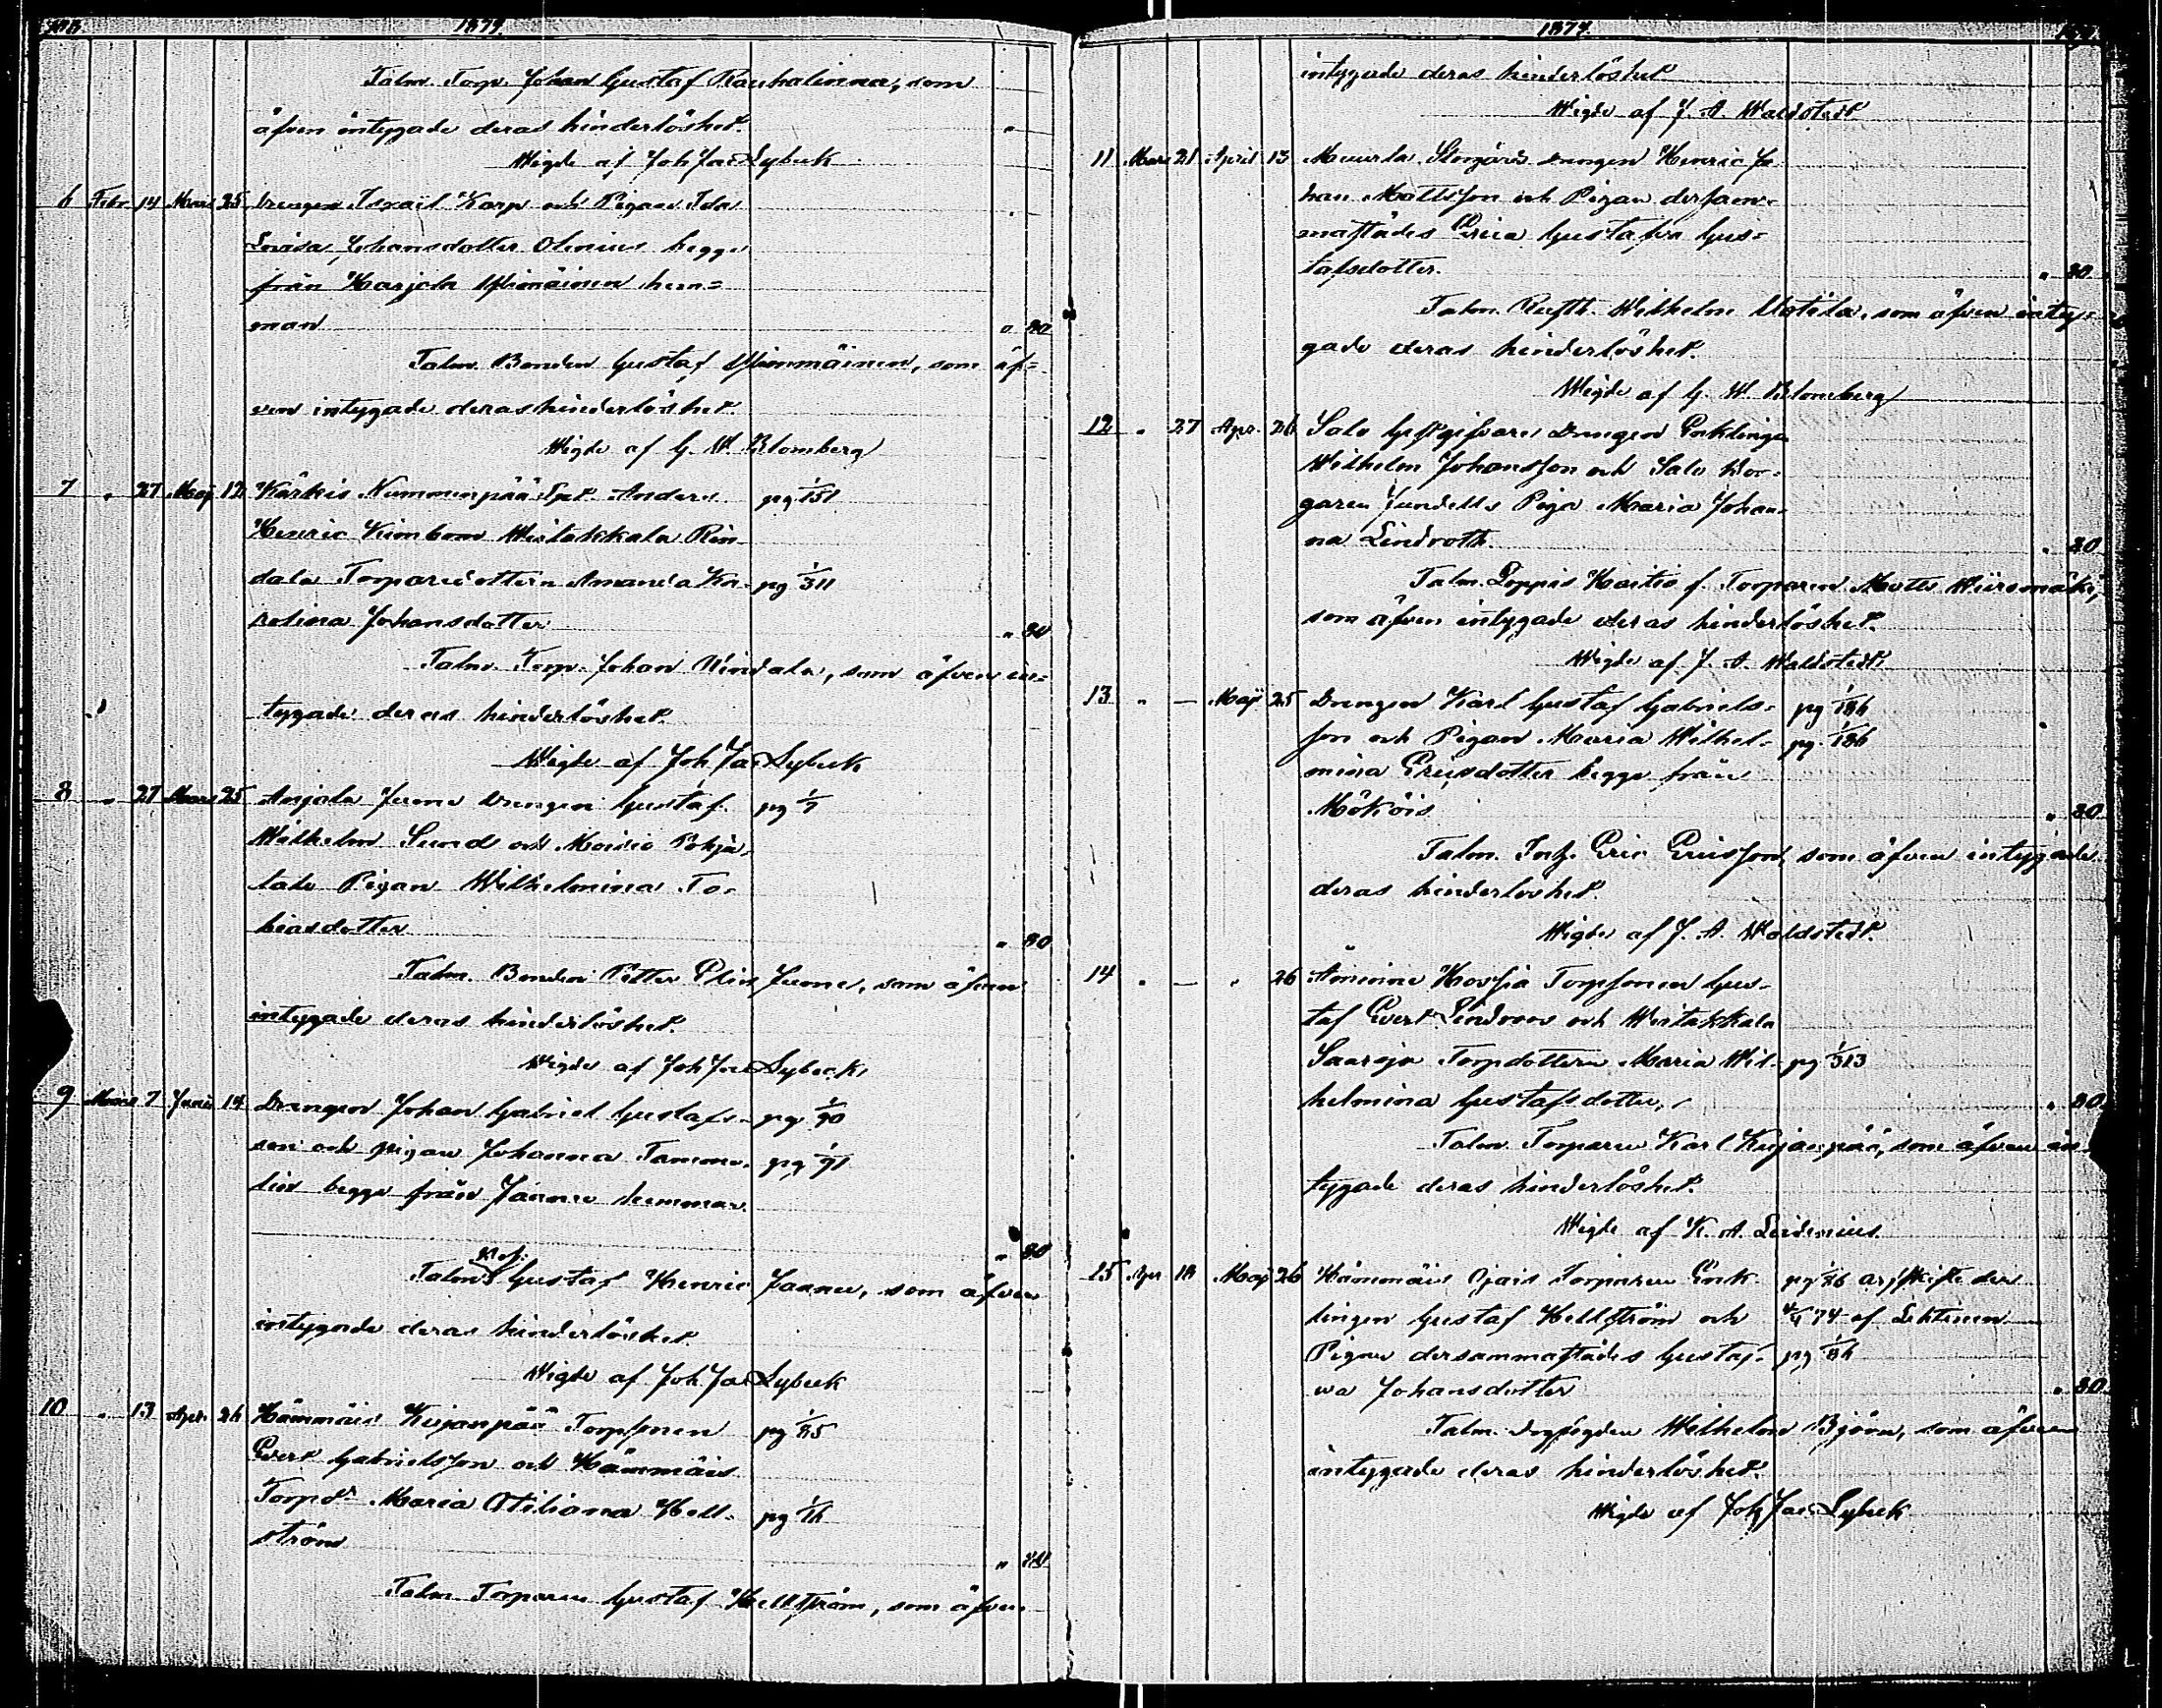 1874
Talm. Torp. Johan Gustaf Rauhalinna, som
äfven intygade deras hinderlöshet.
Wigde af Joh Jac Lybeck
6 Febr 14 Mars 25 Drengen Israel Karp och Pigan Ida
Lovisa Johansdotter Olenius begge
från Karjola hem=
man " 80
Talm. Bonden Gustaf, som äf=
ven intygade deras hinderlöshet.
Wigde af G. W. Blomberg
7 " 27 Maj 12 Kärkis Nummenpää Anders pg 1/151
Henric Kimbom Wiitakkala Rin-
dala Torparedottern Amanda Ka- pg 1/311
rolina Johansdotter " 80
Talm. Torp. Johan Rindala, som äfven in=
tygade deras hinderlöshet.
Wigde af Joh Jac Lybeck
8 " 27 Mars 25 Anjala Jume Drengen Gustaf pg 1/7
Wilhelm Sund och Moisio Pohja-
talo Pigan Wilhelmina To-
biasdotter " 80
Talm. Bonden Petter Elias Jume, som äfven
intygade deras hinderlöshet.
Wigde af Joh Jac Lybeck
9 Mars 7 Juni 14 Drengen Johan Gabriel Gustafs- pg 1/90
son och pigan Johanna Tamme- pg 1/91
lin begge från Jaanu hemman.
" 80
Talm. Gustaf Henric Jaanu, som äfven
intygade deras hinderlöshet.
Wigde af Joh Jac Lybeck
10 " 13 Apr. 26 Hämmäis Kujanpää Torpsonen pg 1/85
Evert Gabrielsson och Hämmäis
Torpdr Maria Otiliana Hell- pg
ström " 80
Talm. Torparen Gustaf Hellström, som äfven
1874
intygade deras hinderlöshet
Wigde af J. A. Waldstedt
11 Mars 21 April 13 Muurla Drengen Henric Jo
han Mattsson och Pigan dersam-
mastädes Erica Gustafva Gus=
tafsdotter. " 80
Talm. Rusth. Wilhelm Uotila, som äfven inty=
gade deras hinderlöshet.
Wigde af G. W. Blomberg
12 " 27 Apr. 26 Salo Gästgifvare Drengen Enklingen
Wilhelm Johansson och Salo Bor-
garen Jundells Piga Maria Johan-
na Lindroth. " 80
Talm. Loppis Hartis f. Torparen Matts Wiirsmäki,
som äfven intygade deras hinderlöshet.
Wigde af J. A. Waldstedt
13 " — Maj 25 Drengen Karl Gustaf Gabriels= pg 1/186
son och Pigan Maria Wilhel= pg. 1/186
mina Ericsdotter begge från
Mököis " 80
Talm. Inh. Eric Ericsson, som äfven intygade
deras hinderlöshet.
Wigde af J. A. Waldstedt.
14 " — " 26 Äminne Hossia Torpsonen Gus-
taf Evert Lindroos och Wiitakkala
Saaroja Torpdottern Maria Wil- pg 1/313
helmina Gustafsdotter, " 80
Talm. Torparen Karl Kujanpää, som äfven in
tygade deras hinderlöshet.
Wigde af K. A. Leidenius.
15 Apr 18 Maj 26 Hämmäis Ojais Torparen Enk- pg 1/86 arfskifte den
lingen Gustaf Hellström och 74 af Lehtinen
Pigan dersammastädes Gustaf- pg 1/86
va Johansdotter " 80
Talm. Wilhelm Björn, som äfven
intygade deras hinderlöshet.
Wigde af Joh Jac Lybeck